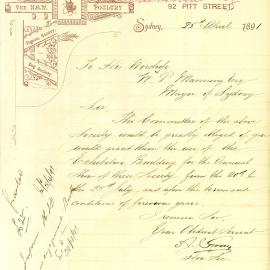 THE N.S.W.
POULTRY
Pigeon, Canary
Dog Society
92 PITT STREET,
Sydney, 25th April 1891
To His Worship
W. P. Manning Esq
Mayor of Sydney
Sir
The Committee of the above
Society would be greatly obliged if you
would grant them the use of the
Exhibition Building for the Annual
Show of their Society from the 20th to
the 25th July and upon the terms and
conditions of previous years.
I remain Sir
Your Obedient Servant
Hon Sec